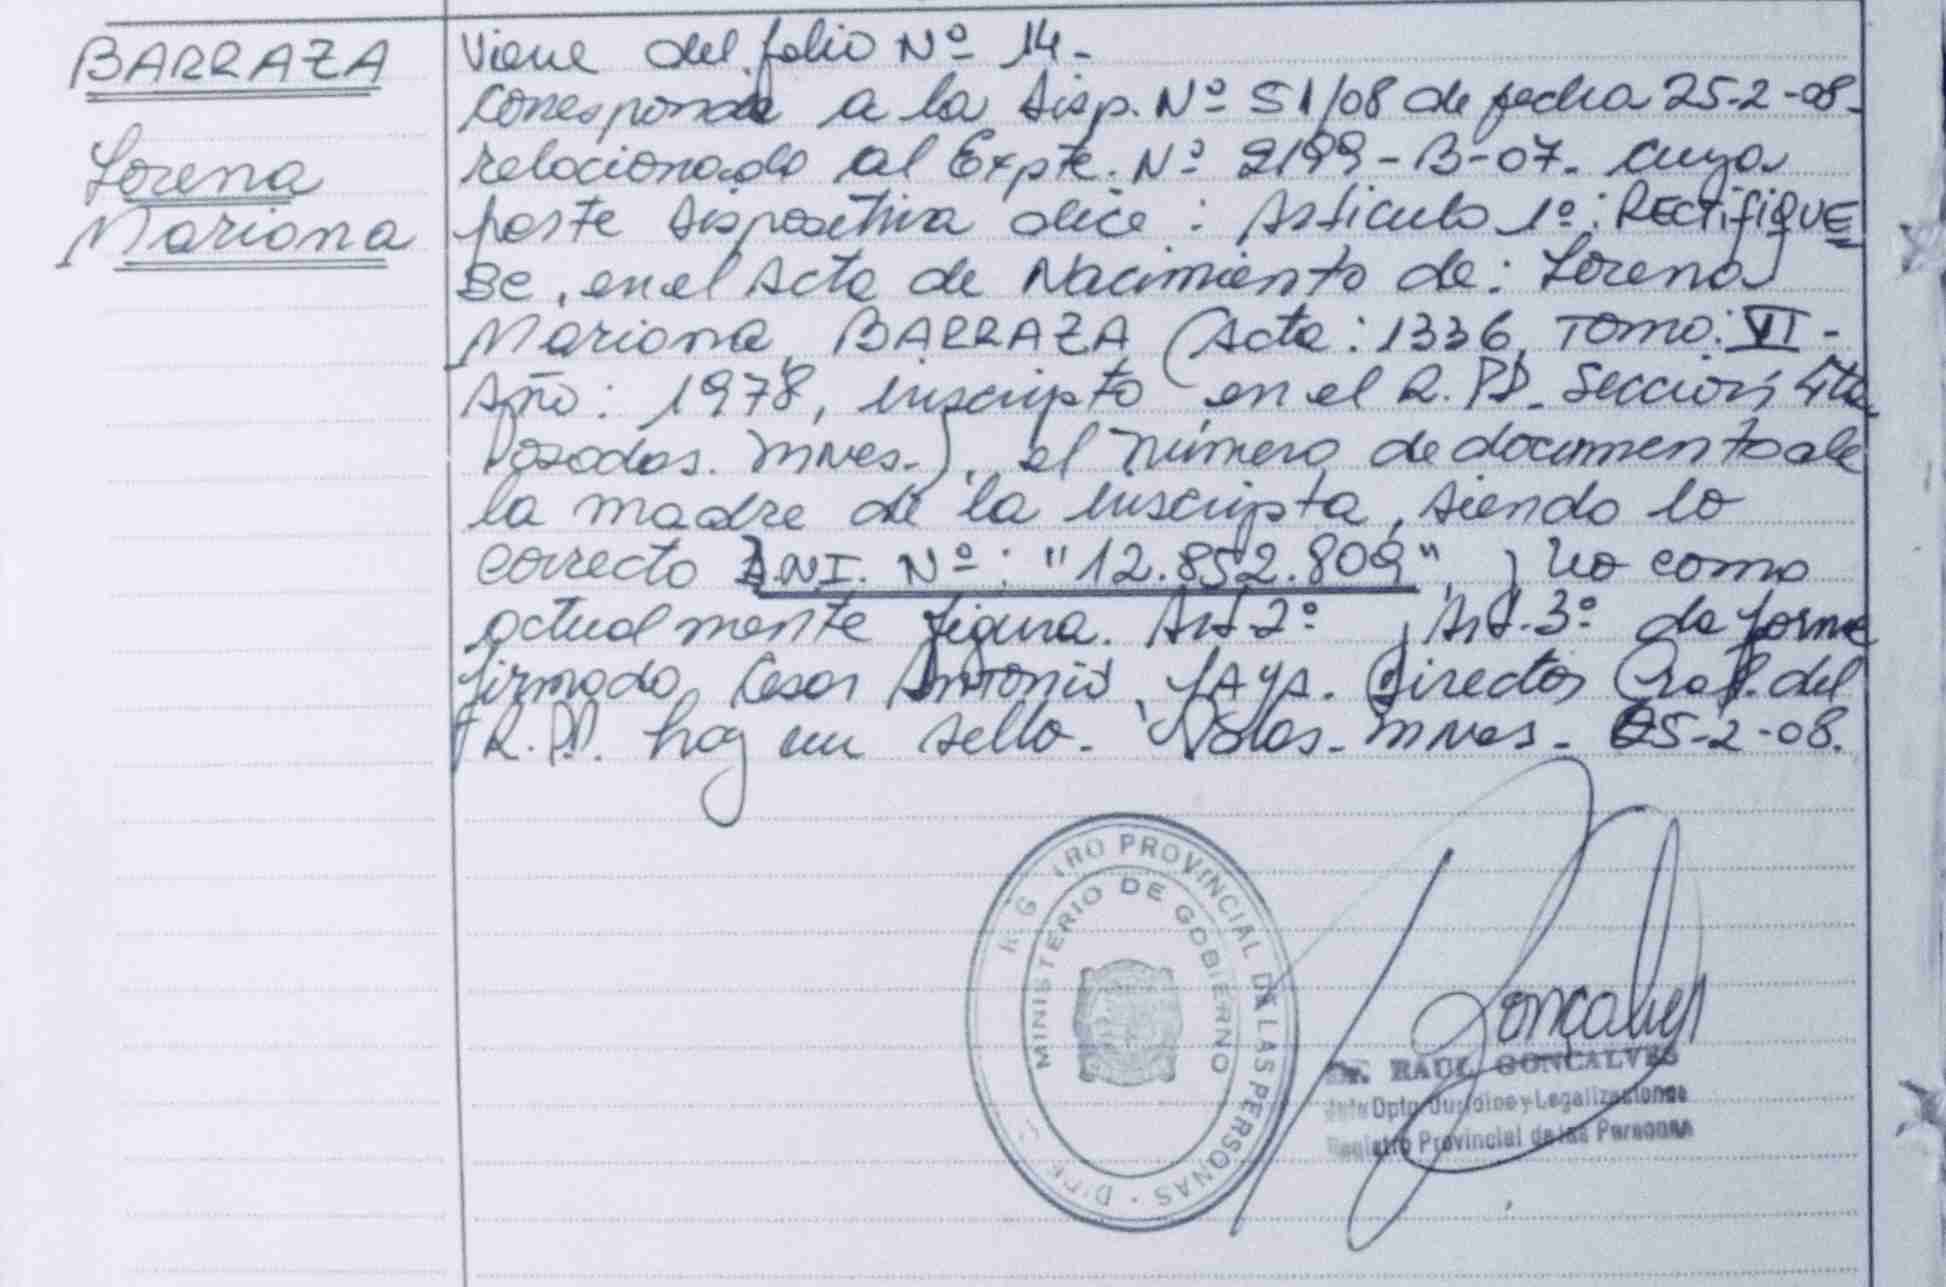 BARRAZA
Lorena
Mariana
Viene del folio Nº 14-
Corresponde a la Disp. Nº 51/08 de fecha 25-2-08-
relacionado al Expte. Nº 2199-B-07- cuya
parte dispositiva dice: Artículo 1º: RECTIFIQUE
SE, en el Acta de Nacimiento de: Lorena
Mariana, BARRAZA (Acta: 1336, TOMO: VI-
Año: 1978, inscripto en el R.P.P. Sección 4ta
Posadas. Mnes.), el número de documento de
la madre de la inscripta, siendo lo
correcto D.N.I. Nº: "12.852.809", y no como
actualmente figura. Art. 2º y Art. 3º de forma
firmado Cesar Antonio Director Gral. del
R.P.P. hay un sello. Pdas. Mnes. 25-2-08.
REGISTRO PROVINCIAL DE LAS PERSONAS
MINISTERIO DE GOBIERNO
Gonçalves
Dr. RAUL GONCALVES
Jefe Dpto. Jurídico y Legalizaciones
Registro Provincial de las Personas